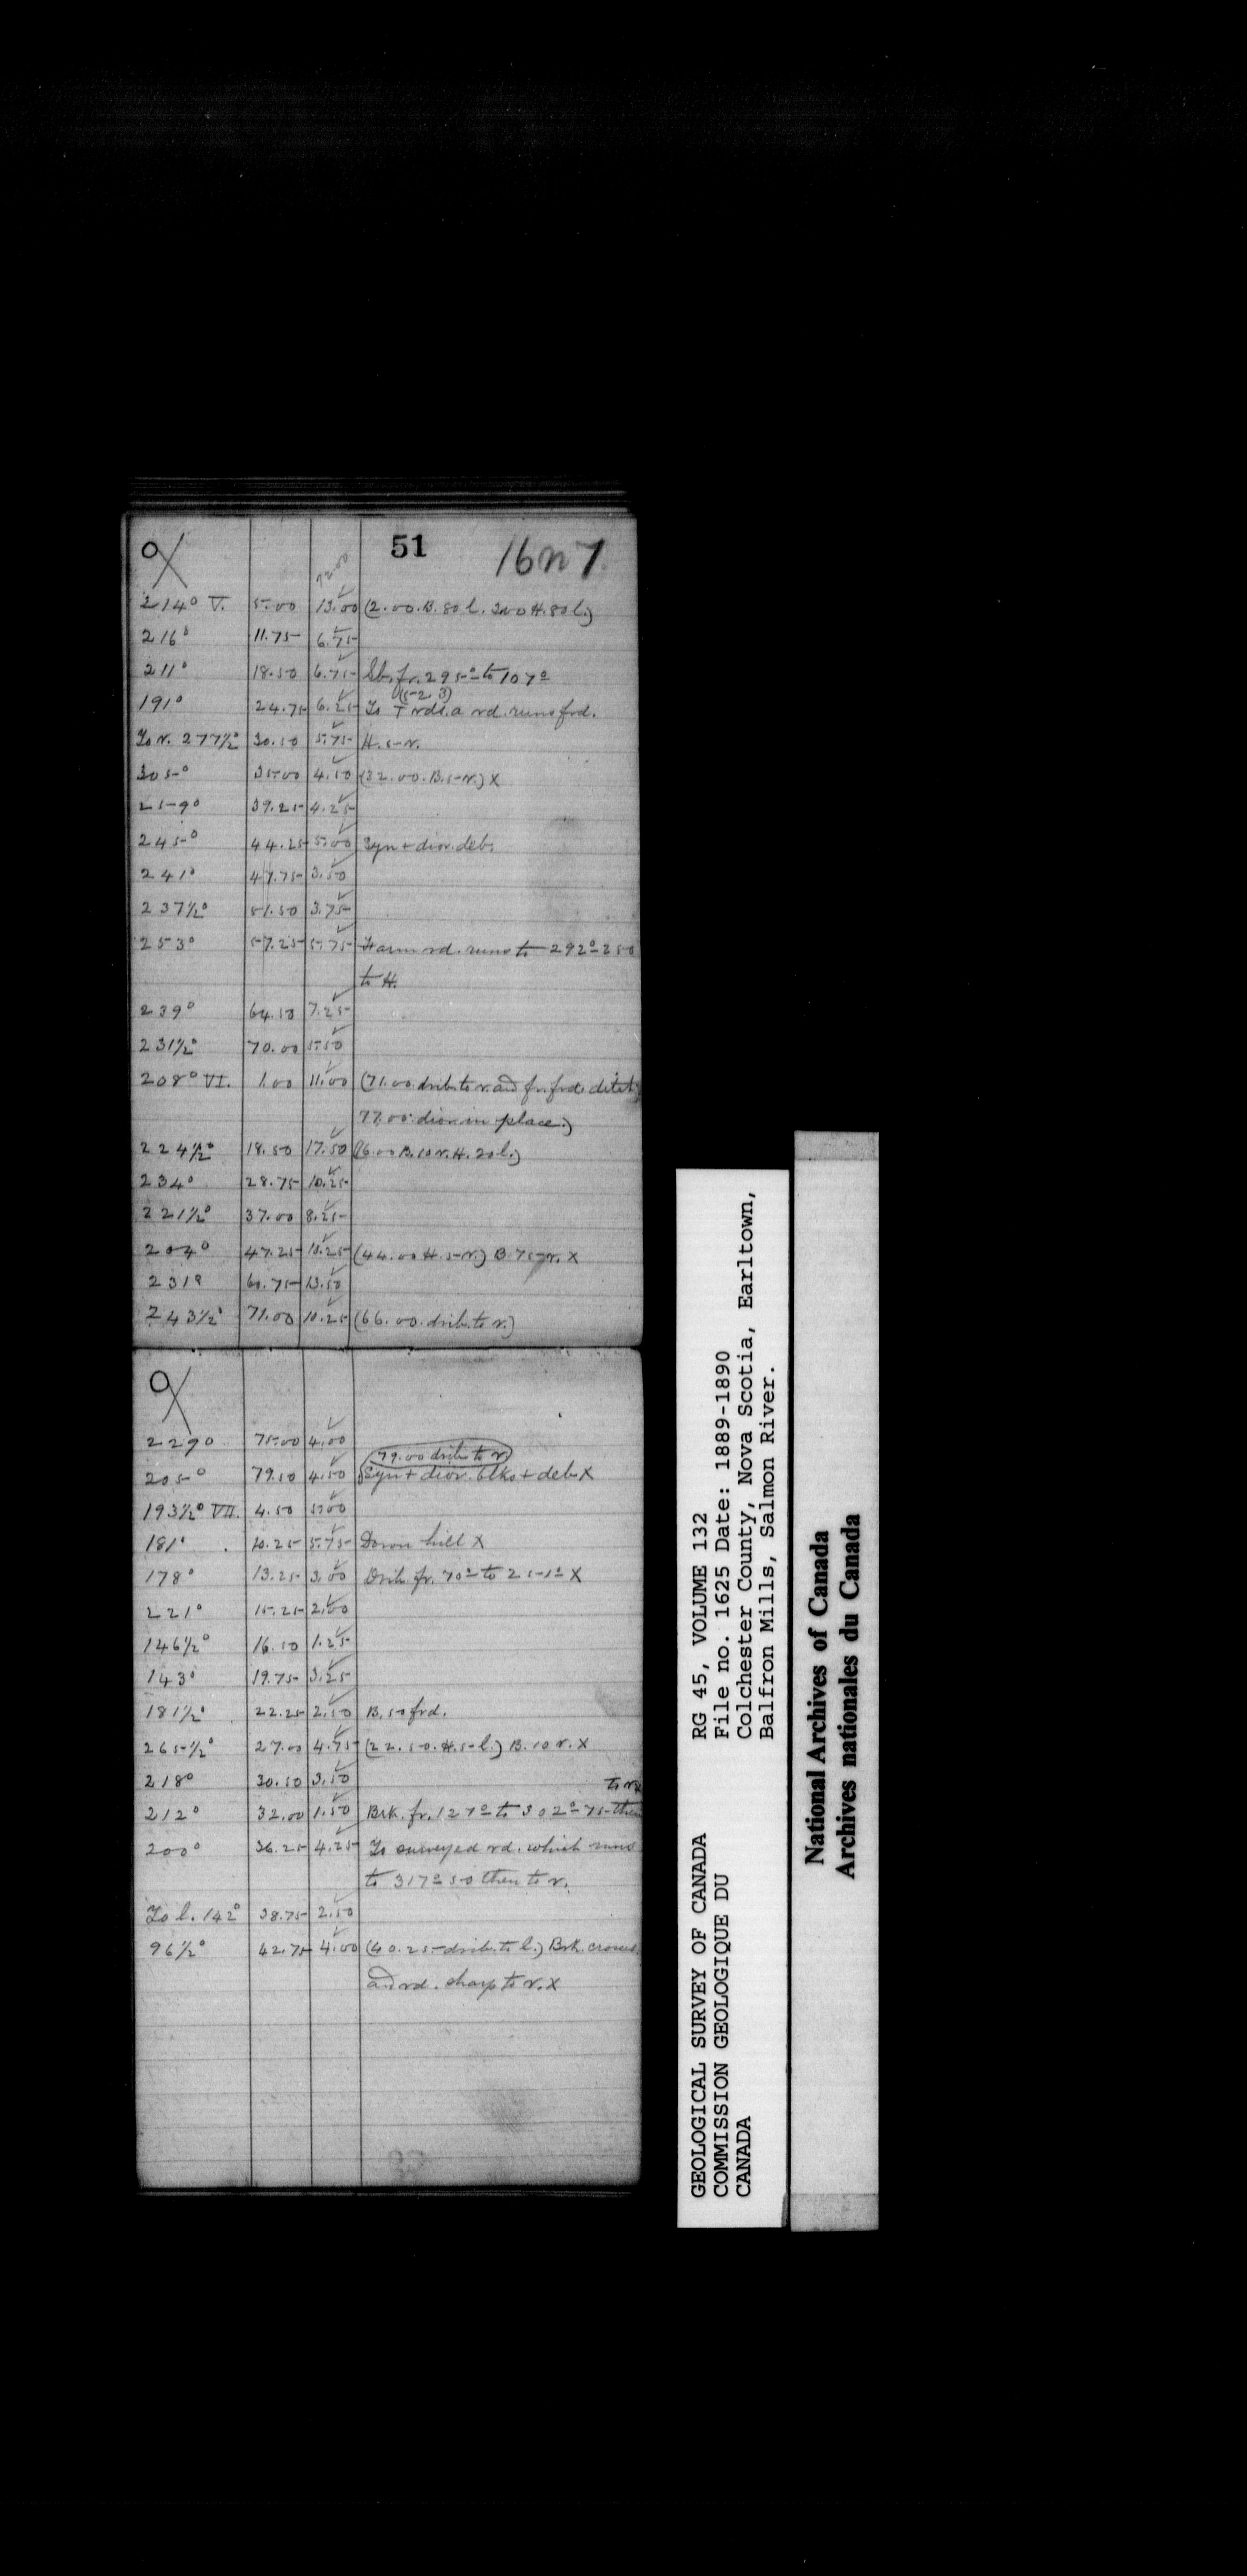 51
16n7
72.00
214° V. 5.00 13.00 (2.00.B.80 l. 3.00 H.80 l.)
216° 11.75 6.75
211° 18.50 6.75 Sb. fr. 295° to 107°
(52.3)
191° 24.75 6.25 To T rds. a rd. runs frd.
To r. 277½° 30.50 5.75 H. 5 r.
305° 35.00 4.50 (32.00.B.5 r.) X
259° 39.25 4.25
245° 44.25 5.00 Syn + dior. deb.
241° 47.75 3.50
237½° 51.50 3.75
253° 57.25 5.75 Farm rd. runs to 292° 250
to H.
239° 64.50 7.25
231½° 70.00 5.50
208° VI. 1.00 11.00 (71.00. drib. to r. and fr. frd.
77.00. dior. in place.)
224½° 18.50 17.50 (6.00 B.10 r. H. 20 l.)
234° 28.75 10.25
221½° 37.00 8.25
204° 47.25 10.25 (44.00 H. 5 r.) B. 75 r. X
231° 60.75 13.50
243½° 71.00 10.25 (66.00. drib. to r.)
229° 75.00 4.00
79.00 drib. to r.
205° 79.50 4.50 Syn + dior. blks + deb X
193½° VII. 4.50 5.00
181° 10.25 5.75 Down hill X
178° 13.25 3.00 Drib. fr. 70° to 251° X
221° 15.25 2.00
146½° 16.50 1.25
143° 19.75 3.25
181½° 22.25 2.50 B. 50 frd.
265½° 27.00 4.75 (22.50. H. 5 l.) B. 10 r. X
218° 30.50 3.50
to r. X
212° 32.00 1.50 Brk. fr. 127° to 302° 75 then
200° 36.25 4.25 To surveyed rd. which runs
to 317° 50 then to r.
To l. 142° 38.75 2.50
96½° 42.75 4.00 (40.25 drib. to l.) Brk. crosses
and rd. sharp to r. X
GEOLOGICAL SURVEY OF CANADA RG 45, VOLUME 132
COMMISSION GEOLOGIQUE DU File no. 1625 Date: 1889-1890
CANADA Colchester County, Nova Scotia, Earltown,
Balfron Mills, Salmon River.
National Archives of Canada
Archives nationales du Canada